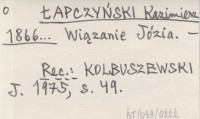 o ŁAPCZYŃSKI Kazimierz
1866... Wiązanie Józia. –
Rec.: KOLBUSZEWSKI
J. 1975, s. 49.